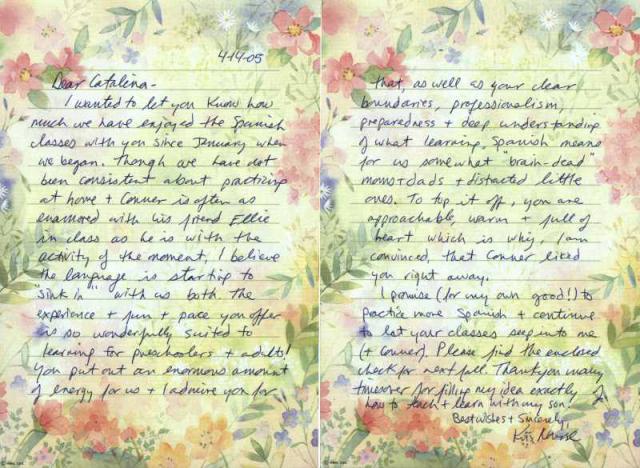 4-14-05
Dear Catalina-
I wanted to let you know how
much we have enjoyed the Spanish
classes with you since January when
we began. Though we have not
been consistent about practicing
at home + Conner is often as
enamored with his friend Ellie
in class as he is with the
activity of the moment, I believe
the language is starting to
"sink in" with us both. The
experience + fun + pace you offer
is so wonderfully suited to
learning for preschoolers + adults!
You put out an enormous amount
of energy for us + I admire you for
that, as well as your clear
boundaries, professionalism,
preparedness + deep understanding
of what learning, Spanish means
for us somewhat "brain-dead"
moms + dads + distracted little
ones. To top it off, you are
approachable, warm + full of
heart which is why, I am
convinced, that Conner liked
you right away.
I promise (for my own good!) to
practice more Spanish + continue
to let your classes seep into me
(+ Conner). Please find the enclosed
check for next fall. Thank you many
times over for filling my idea exactly of
how to teach + learn with my son!
Best wishes + Sincerely,
Kris